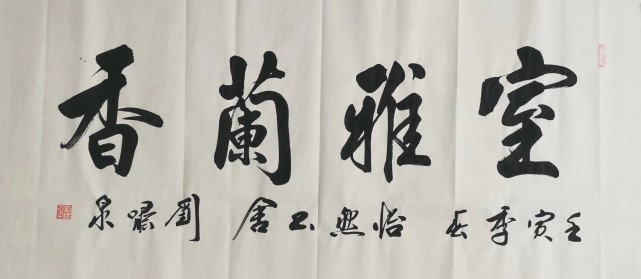 室雅蘭香
壬寅季春 怡然 舍 劉 泉